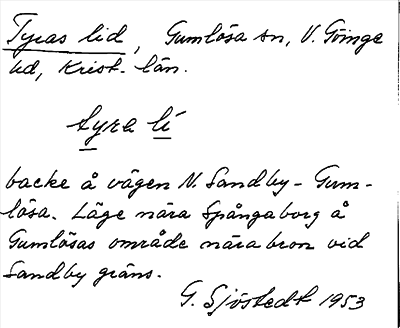 Tyras lid, Gumlösa sn, V. Göinge
hd, Krist. län.
tyra li
backe å vägen N. Sandby - Gum-
lösa. Läge nära Spångaborg å
Gumlösas område nära bron vid
Sandby gräns.
G. Sjöstedt 1953